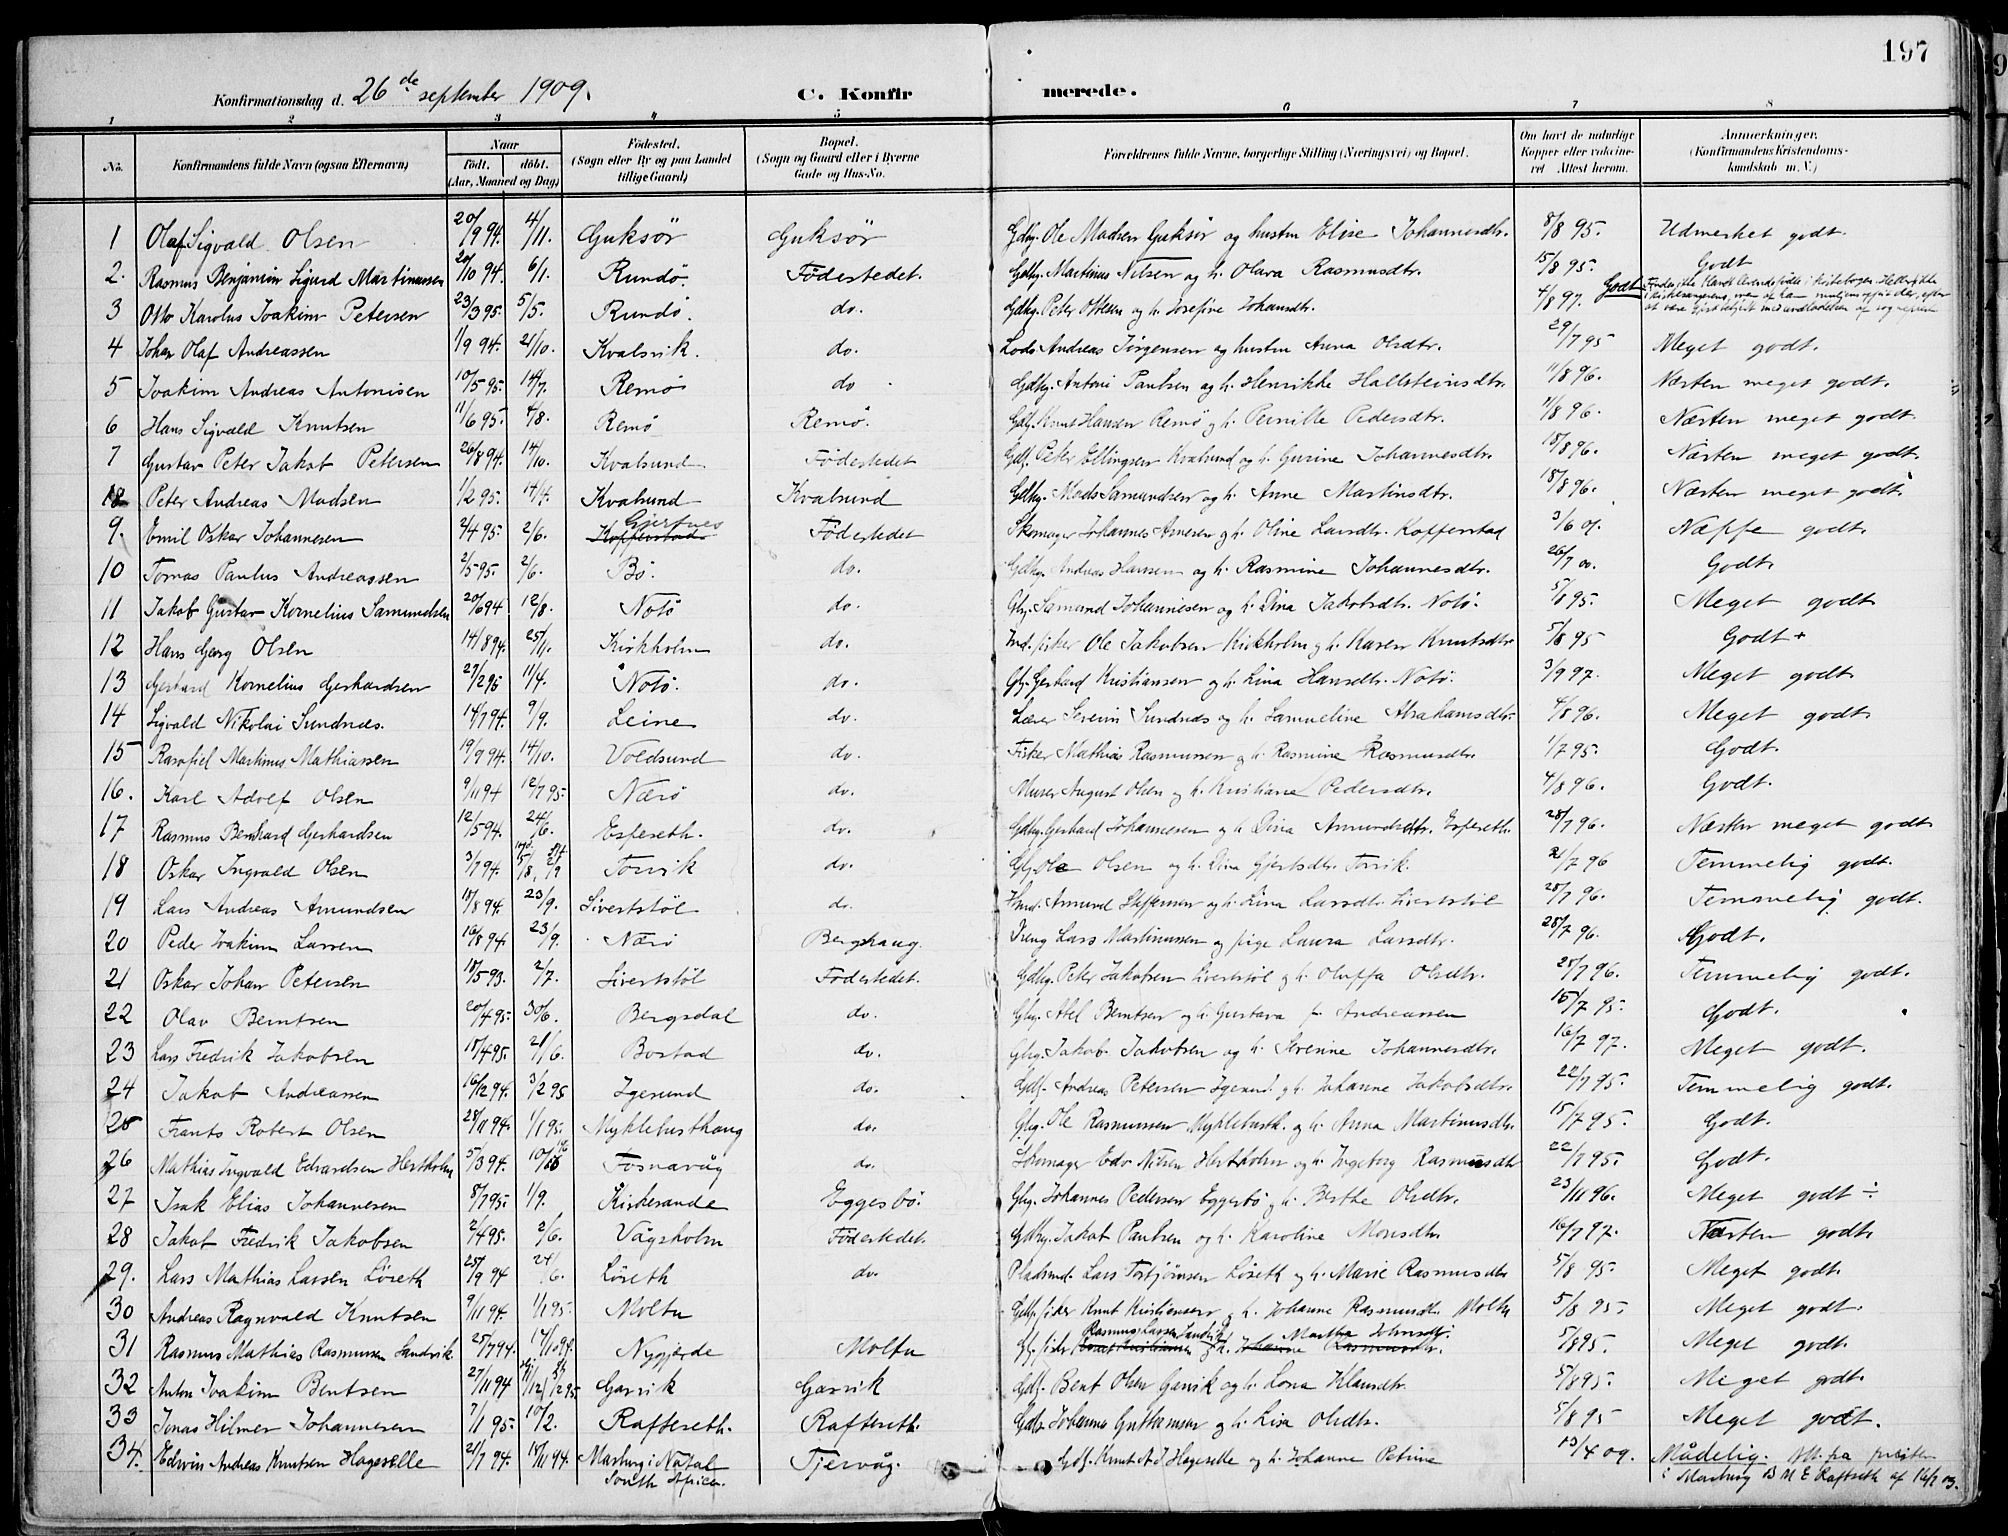 197
Konfirmationsdag d. 26de september 1909.
C. Konfirmerede.
1 2 3 4 5 6 7 8
No. Konfirmandens fulde Navn (ogsaa Efternavn) Naar født. døbt. (Aar, Maaned og Dag) Fødested. (Sogn eller By og paa Landet tillige Gaard) Bopæl. (Sogn og Gaard eller i Byerne Gade og Hus-No. Forældrenes fulde Navne, borgerlige Stilling (Næringsvei) og Bopæl. Om havt de naturlige Kopper eller vaccineret Attest herom. Anmerkninger. (Konfirmandens Kristendomskundskab m. V.)
1 Olaf Sigvald Olsen 20/9 94. 4/11. Guksør Guksør Gdbg. Ole Madsen Guksør og hustru Elise Johannesdtr. 8/8 95. Udmerket godt.
2. Rasmus Benjamin Sigurd Martinussen 20/10 94. 6/1. Rundø. Fødestedet. Gdbg. Martinus Nilsen og h. Olava Rasmusdtr. 15/8 95. Godt
3 Otto Karolus Joakim Petersen 23/3 95. 5/5. Rundø. do. Gdbg. Peter Ottesen og h. Josefine Johansdtr. 4/8 97. Godt
4 Johan Olaf Andreassen 1/9 94. 21/10. Kvalsvik. do. Lods Andreas Jørgensen og hustru Anna Olsdtr. 29/7 95 Meget godt.
5 Joakim Andreas Antonisen 10/5 95. 14/7. Remø do. Gdbg. Antoni Paulsen og h. Henrikke Hallsteinsdtr. 11/8 96. Næsten meget godt.
6 Hans Sigvald Knutsen 11/6 95. 4/8. Remø Remø. Gdbg. Knut Hansen Remø og h. Pernille Pedersdtr. 11/8 96. Næsten meget godt.
7 Gustav Peter Jakob Petersen 26/8 94. 14/10. Kvalsund Fødestedet Gdf. Peter Ellingsen Kvalsund og h. Gurine Johannesdtr. 18/8 96. Næsten meget godt.
8 Peter Andreas Madsen 1/2 95. 14/4. Kvalsund Kvalsund Gdbg. Mads Samundsen og h. Anne Martinsdtr. 18/8 96. Næsten meget godt.
9. Emil Oskar Johannesen 2/4 95. 2/6. Gjertnes Fødestedet Skomager Johannes Arnesen og h. Oline Larsdtr. Kopperstad 3/6 07. Neppe godt.
10 Tomas Paulus Andreassen 2/5 95. 2/6. Bø. do. Gdbg. Andreas Hansen og h. Rasmine Johannesdtr. 26/7 00. Godt.
11 Jakob Gustav Kornelius Samundsen 20/6 94 12/8. Notø do. Gbg. Samund Johannesen og h. Dina Jakobsdtr. Notø. 5/8 95. Meget godt
12 Hans Georg Olsen 14/8 94. 25/11. Kirkholm do. Ind. fisker Ole Jakobsen Kirkholm og h. Karen Knutsdtr 5/8 95 Godt +
13 Gerhard Kornelius Gerhardsen 27/2 95 11/4. Notø. do. Gbg. Gerhard Kristiansen og h. Lina Hansdtr. Notø. 3/9 97. Meget godt
14 Sigvald Nikolai Sundnæs. 14/7 94. 9/9. Leine do. Lærer Severin Sundnæs og h. Samueline Abrahamsdtr. 4/8 96. Meget godt.
15 Rasofiel Martinus Mathiassen 19/9 94. 14/10. Voldsund do. Fisker Mathias Rasmussen og h. Rasmine Rasmusdtr. 1/7 95. Godt.
16. Karl Adolf Olsen 9/11 94 12/7 95. Nærø do. Murer August Olsen og h. Kristiane Pedersdtr. 4/8 96. Godt.
17 Rasmus Bernhard Gerhardsen 12/5 94. 24/6. Espeseth. do. Gdbg. Gerhard Johannesen og h. Dina Amundsdtr. Espeseth. 28/7 96. Næsten meget godt
18 Oskar Ingvald Olsen 3/7 94. Torvik do. Gbg. Ole Olsen og h. Dina Gjertsdtr. Torvik. 21/7 96 Temmelig godt.
19 Lars Andreas Amundsen 18/8 94. 23/9. Sivertstøl do. Amund Steffensen og h. Lina Larsdtr. Sivertstøl 28/7 96. Temmelig godt.
20 Peder Joakim Larsen 16/8 94. 23/9. Nærø Berghaug. Dreng Lars Martinussen og pige Laura Larsdtr. 28/7 96. Godt.
21 Oskar Johan Petersen 18/5 93. 2/7. Sivertstøl Fødestedet. Gdbg. Peter Jakobsen Sivertstøl og h. Oluffa Olsdtr. 28/7 96. Temmelig godt.
22 Olav Berntsen 20/4 95. 30/6. Bergsdal do. Gbg. Abel Berntsen og h. Gustava f. Andreassen 15/7 95. Godt.
23 Lars Fredrik Jakobsen 18/4 95. 21/6. Bostad do. Gbg. Jakob Jakobsen og h. Severine Johannesdtr. 16/7 97. Meget godt.
24 Jakob Andreassen 16/12 94. 3/2 95 Igesund do. Gdf. Andreas Petersen Igesund og h. Johanne Jakobsdtr. 22/7 95. Temmelig godt.
25 Frants Robert Olsen 28/11 94. 1/1 95. Myklebusthaug do. Gbg. Ole Rasmussen Myklebusth. og h. Anna Martinusdtr. 15/7 95. Godt.
26 Mathias Ingvald Edvardsen Hertholm 5/3 94. Fosnavåg do. Skomager Edv Nilsen Hertholm og h. Ingeborg Rasmusdtr 22/7 95. Godt.
27 Isak Elias Johannesen 8/7 95. 1/9. Kirkesande Eggesbø. Gbg. Johannes Pedersen Eggesbø og h. Berthe Olsdtr. 23/11 96. Meget godt ÷
28 Jakob Fredrik Jakobsen 2/4 95. 2/6. Vågsholm Fødestedet. Gdbg. Jakob Paulsen og h. Karoline Monsdtr. 16/7 97. Næsten godt.
29. Lars Mathias Larsen Løseth 25/9 94 Løseth do. Pladsmd. Lars Torbjørnsen Løseth og h. Marie Rasmusdtr 5/8 95. Meget godt.
30 Andreas Ragnvald Knutsen 9/11 94. 1/1 95. Moltu Gdf. fisker Knut Kristiansen og h. Johanne Rasmusdtr. Moltu 5/8 95. Meget godt.
31 Rasmus Mathias Rasmussen Sandvik 25/7 94. Nygjerde Moltu Rasmus Larsen Sandvik Martha Johnsdtr. 5/8 95. Meget godt.
32 Anton Joakim Bentsen 27/11 94 Garvik Garvik Gdf. Bent Olsen Garvik og h. Lona Klausdtr. 5/8 95. Meget godt.
33 Jonas Hilmer Johannesen 7/1 95. 10/2. Rafteseth. Rafteseth. Gdbr. Johannes Guttormsen og h. Lisa Olsdtr. 5/8 95 Meget godt.
34. Edwin Andreas Knutsen Hageselle 21/7 94. 18/11 94. Marburg i Natal South Africa. Tjervåg. Gdf. Knut A.J. Hageselle og h. Johanne Petrine 13/4 09. Mådelig. Att. fra presten
i Marburg af 16/2 03.